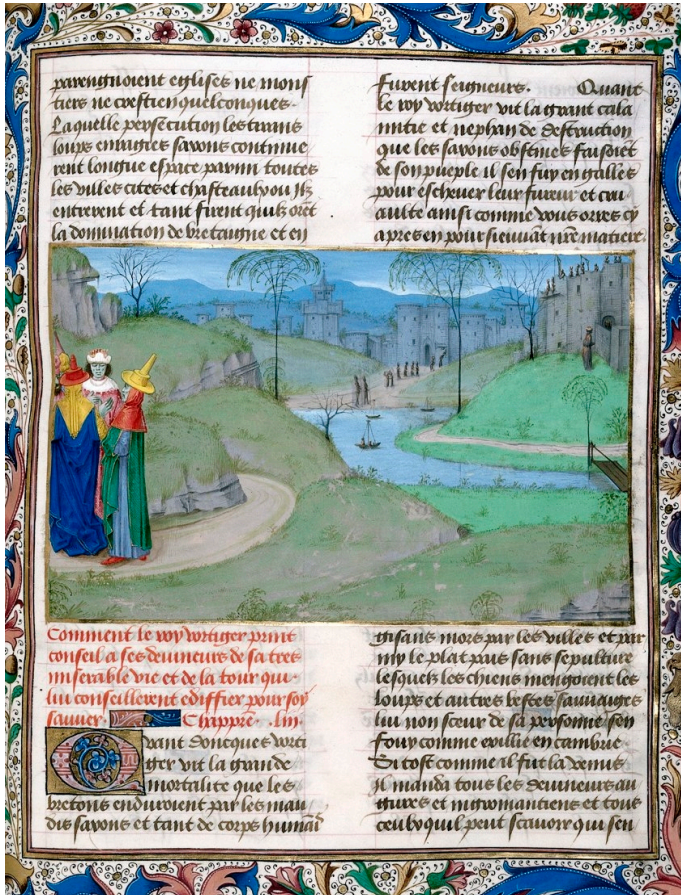 parengnoient eglises ne mons
tiers ne crestien quelconques.
Laquelle persecution les tirans
loups enragies saxons continue
rent longue espace parmi toutes
les villes cites et chasteaulx ou ilz
entrerent et tant firent quilz oret
la domination de bretaigne et en
furent seigneurs. Quant
le roy vortiger vit la grant cala
mitie et nephan de destruction
que les saxons obstines faisoiet
de son pueple il sen fuy en galles
pour eschever leur fureur et cru
aulte ainsi comme vous orres cy
apres en poursieuvat nre matiere.
Comment le roy vortiger print
conseil a ses devineurs de sa tres
miserable vie et de la tour qui
lui conseillerent ediffier pour soy
sauver. Chappre. lm.
Quant doncques vorti
ger vit la grande
mortalite que les
bretons enduroient par les mau
dis saxons et tant de corps humais
gisans mors par les villes et par
my le plat pais sans sepulture
lesquelz les chiens mengoient les
loups et autres bestes sauvaiges
lui non sceur de sa personne sen
fouy comme exillie en cambrie.
Si tost comme il fut la venus
il manda tous les devineurs au
gures et nigromantiens et tous
ceulx quil peut scavoir qui sen